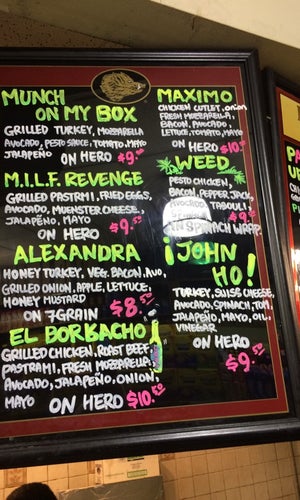 MUNCH
ON MY BOX
GRILLED TURKEY, MOZZARELLA
AVOCADO, PESTO SAUCE, TOMATO,
JALAPEÑO, MAYO
ON HERO $9.50
M.I.L.F. REVENGE
GRILLED PASTRMI, FRIED EGGS,
AVOCADO, MUENSTER CHEESE,
JALAPEÑO, MAYO
ON HERO $9.50
ALEXANDRA
HONEY TURKEY, VEG. BACON, AVO,
GRILLED ONION, APPLE, LETTUCE,
HONEY MUSTARD
ON 7GRAIN $8.50
EL BORBACHO
GRILLED CHICKEN, ROAST BEEF
PASTRAMI, FRESH MOZZARELLA,
AVOCADO, JALAPEÑO, ONION,
MAYO ON HERO $10.50
MAXIMO
CHICKEN CUTLET, onion
FRESH MOZZARELLA,
BACON, AVOCADO,
LETTUCE, TOMATO, MAYO
ON HERO $10.50
WEED
PESTO CHICKEN,
BACON, PEPPER JACK,
AVOCADO, TABOULI,
$9.50
ON SPINACH WRAP
¡JOHN
HO!
TURKEY, SWISS CHEESE,
AVOCADO, SPINACH, TOM,
JALAPEÑO, MAYO, OIL,
VINEGAR
ON HERO
$9.50